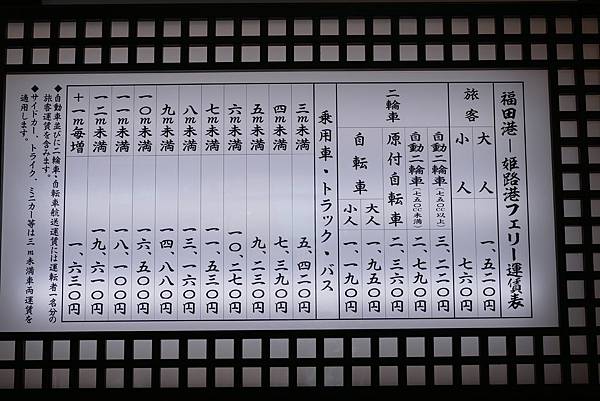 福田港―姫路港フェリー運賃表
旅客
大人 一、五二〇円
小人 七六〇円
二輪車
自動二輪車(七五〇cc以上) 三、二二〇円
自動二輪車(七五〇cc未満) 二、七九〇円
原付自転車 二、三六〇円
自転車
大人 一、九五〇円
小人 一、一九〇円
乗用車・トラック・バス
三m未満 五、四二〇円
四m未満 七、三九〇円
五m未満 九、二三〇円
六m未満 一〇、二七〇円
七m未満 一一、五三〇円
八m未満 一三、一六〇円
九m未満 一四、八八〇円
一〇m未満 一六、五〇〇円
一一m未満 一八、一〇〇円
一二m未満 一九、六一〇円
十一m毎増 一、六三〇円
◆自動車並びに二輪車・自転車航送運賃には運転者一名分の
旅客運賃を含みます。
◆サイドカー、トライク、ミニカー等は三m未満車両運賃を
適用します。